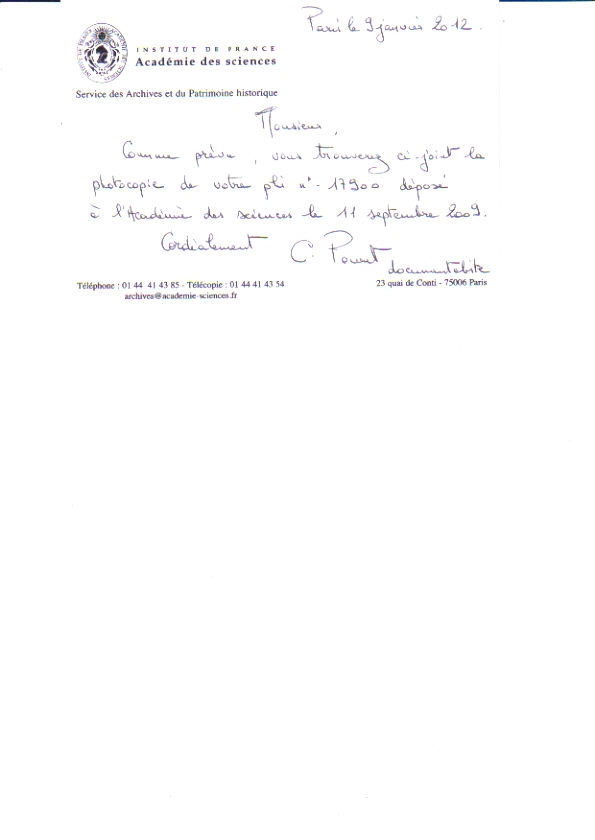 Paris le 9 janvier 2012.
INSTITUT DE FRANCE
Académie des sciences
Service des Archives et du Patrimoine historique
Monsieur,
Comme prévu, vous trouverez ci-joint la
photocopie de votre pli n°. 17900 déposé
à l'Académie des sciences le 11 septembre 2009.
Cordialement C.
documentaliste
Téléphone : 01 44 41 43 85 - Télécopie : 01 44 41 43 54
23 quai de Conti - 75006 Paris
archives@academie-sciences.fr